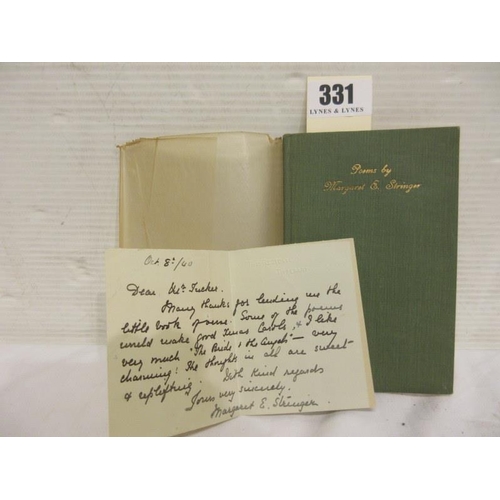 331
LYNES & LYNES
Poems by
Margaret E. Stringer
Oct 8th/40
Dear Mr. Tucker.
Many thanks for lending us the
little book of poems. Some of the poems
would make good Xmas Carols, & I like
very much "The Birds & the Angels" – very
charming! The thoughts in all are sweet
& uplifting. With kind regards
Yours very sincerely.
Margaret E. Stringer.